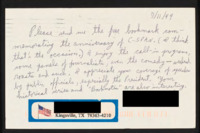 9/11/09
Please send me the free bookmark com-
memorating the anniversary of C-SPAN, (I think
that's the occasion). I enjoy the call-in program,
some panels of journalists, even the comedy — when
Senate and such. I appreciate your coverage of speeches
by public officials, especially the President. Your
historical series and "Booknotes" are also interesting.
Kingsville, TX 78363-4210